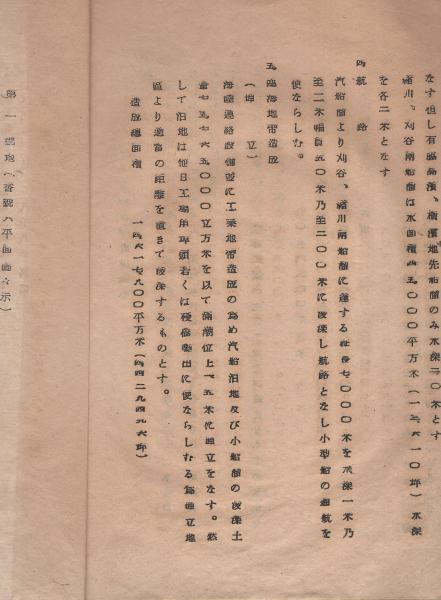 なす但し有脇船溜、横濱地先船溜のみ水深二〇米とす
緒川、刈谷兩船溜は水面積四五〇〇〇平方米(一三、六一〇坪)水深
を各二米となす
四 航路
汽船溜より刈谷、緒川兩船溜に達する延長七〇〇〇米を水深一米乃
至二米幅員五〇米乃至二〇〇米に浚渫し航路となし小型船の通航を
便ならしむ。
五 臨海地帶造成
(埋立)
海陸連絡設備並に工業地帶造成の爲め汽船泊地及び小船溜の浚渫土
七五七六五〇〇〇立方米を以て滿潮位上一、五米に埋立をなす。然
して泊地は他日工場用埠頭若くは棧橋築出に便ならしむる爲埋立地
區より適當の距離を置きて浚渫するものとす。
造成總面積 一四六一七九〇〇平方米(四四二九四九六坪)
第一號地(番號八平面圖ニ示)